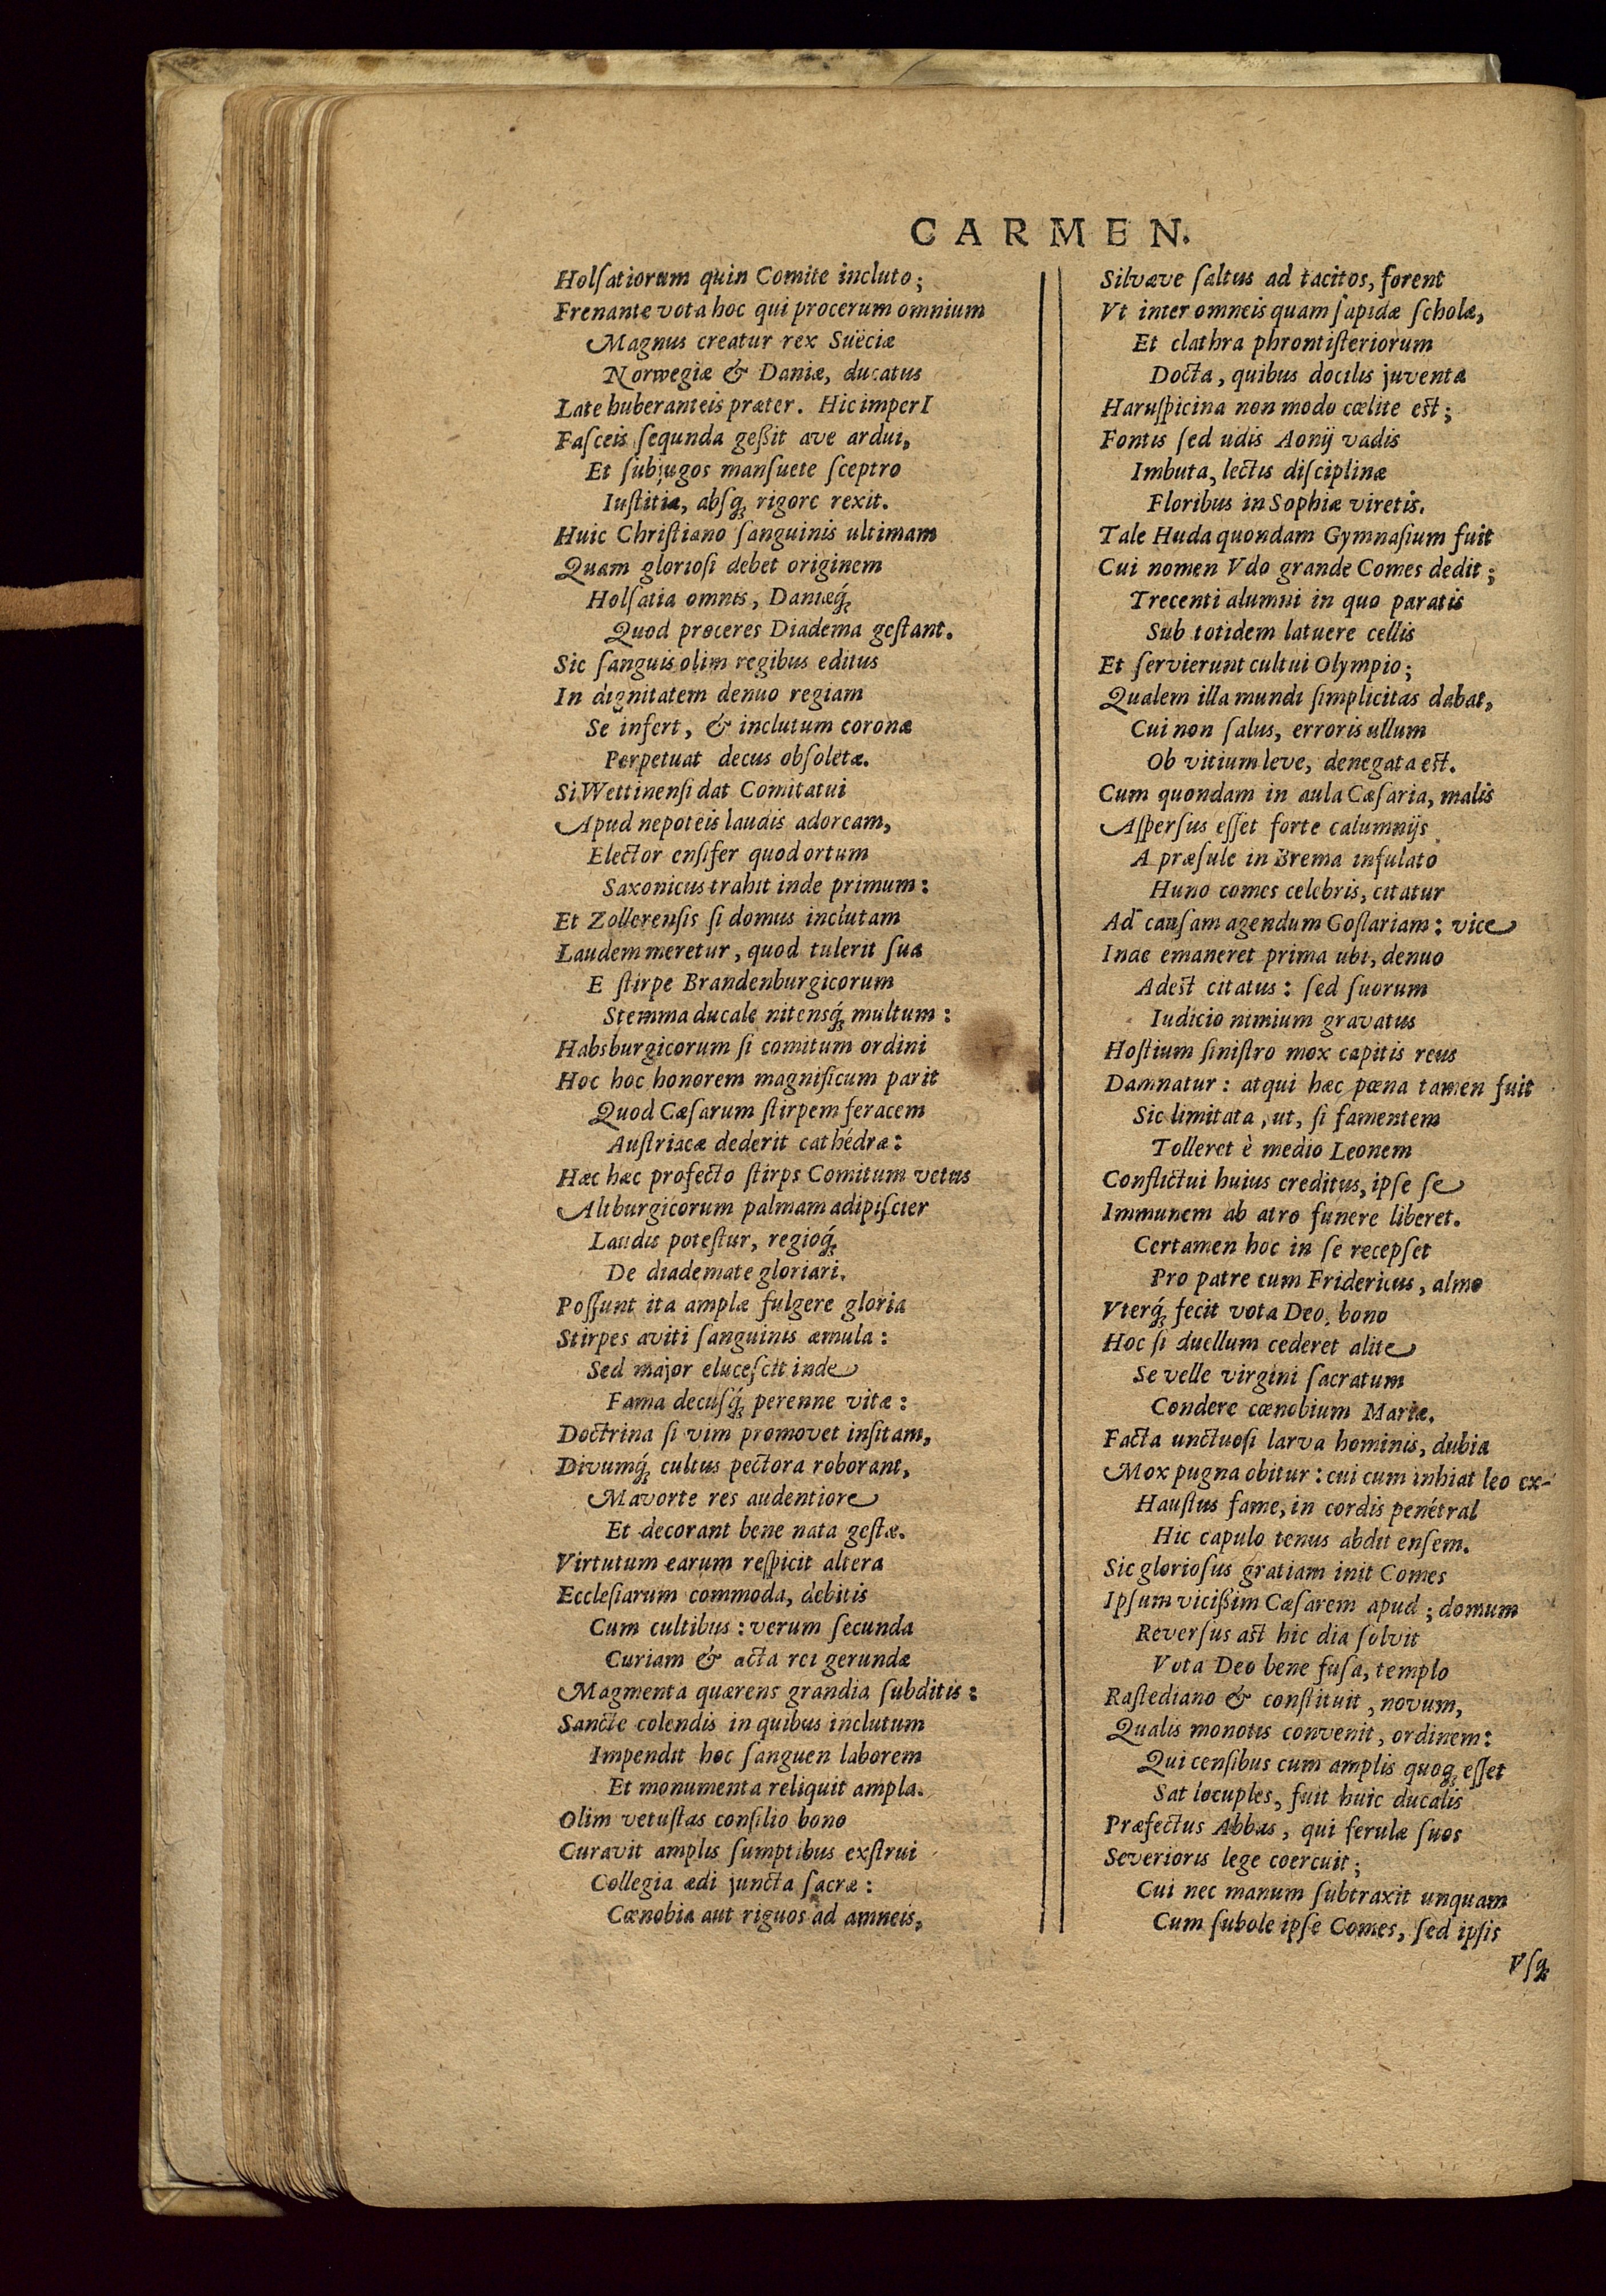 CARMEN.
Holſatiorum quin Comite incluto;
Frenante vota hoc qui procerum omnium
Magnus creatur rex Suëciæ
Norwegiæ & Daniæ, ducatus
Late huberanteis præter. Hic imperI
Faſceis ſequnda geßit ave ardui,
Et ſubjugos manſuete ſceptro
Iuſtitiæ, abſq́; rigore rexit.
Huic Chriſtiano ſanguinis ultimam
Quam glorioſi debet originem
Holſatia omnis, Daniæq́;
Quod proceres Diadema geſtant.
Sic ſanguis olim regibus editus
In dignitatem denuo regiam
Se infert, & inclutum coronæ
Perpetuat decus obſoletæ.
Si Wettinenſi dat Comitatui
Apud nepoteis laudis adoream,
Elector enſifer quod ortum
Saxonicus trahit inde primum:
Et Zollerenſis ſi domus inclutam
Laudem meretur, quod tulerit ſua
E ſtirpe Brandenburgicorum
Stemma ducale nitensq́; multum:
Habsburgicorum ſi comitum ordini
Hoc hoc honorem magnificum parit
Quod Cæſarum ſtirpem feracem
Auſtriacæ dederit cathédræ:
Hæc hæc profecto ſtirps Comitum vetus
Altburgicorum palmam adipiſcier
Laudis poteſtur, regioq́;
De diademate gloriari.
Poſſunt ita amplæ fulgere gloria
Stirpes aviti ſanguinis æmula:
Sed major eluceſcit inde
Fama decuſq́; perenne vitæ:
Doctrina ſi vim promovet inſitam,
Divumq́; cultus pectora roborant,
Mavorte res audentiore
Et decorant bene nata geſtæ.
Virtutum earum reſpicit altera
Eccleſiarum commoda, debitis
Cum cultibus: verum ſecunda
Curiam & acta rei gerundæ
Magmenta quærens grandia ſubditis:
Sancte colendis in quibus inclutum
Impendit hoc ſanguen laborem
Et monumenta reliquit ampla.
Olim vetuſtas conſilio bono
Curavit amplis ſumptibus exſtrui
Collegia ædi juncta ſacræ:
Cœnobia aut riguos ad amneis,
Silvæve ſaltus ad tacitos, forent
Vt inter omneis quam ſapidæ ſcholæ,
Et clathra phrontiſteriorum
Docta, quibus docilis juventa
Haruſpicina non modo cœlite eſt;
Fontis ſed udis Aonij vadis
Imbuta, lectis diſciplinæ
Floribus in Sophiæ viretis.
Tale Huda quondam Gymnaſium fuit
Cui nomen Vdo grande Comes dedit;
Trecenti alumni in quo paratis
Sub totidem latuere cellis
Et ſervierunt cultui Olympio;
Qualem illa mundi ſimplicitas dabat,
Cui non ſalus, erroris ullum
Ob vitium leve, denegata eſt.
Cum quondam in aula Cæſaria, malis
Aſperſus eſſet forte calumnijs
A præſule in Brema infulato
Huno comes celebris, citatur
Ad cauſam agendum Goſlariam: vice
Inde emaneret prima ubi, denuo
Adeſt citatus: ſed ſuorum
Iudicio nimium gravatus
Hoſtium ſiniſtro mox capitis reus
Damnatur: atqui hæc pœna tamen fuit
Sic limitata, ut, ſi famentem
Tolleret è medio Leonem
Conflictui huius creditus, ipſe ſe
Immunem ab atro funere liberet.
Certamen hoc in ſe recepſet
Pro patre cum Fridericus, almo
Vterq́; fecit vota Deo, bono
Hoc ſi duellum cederet alite
Se velle virgini ſacratum
Condere cœnobium Mariæ.
Facta unctuoſi larva hominis, dubia
Mox pugna obitur: cui cum inhiat leo ex-
Hauſtus fame, in cordis penétral
Hic capulo tenus abdit enſem.
Sic glorioſus gratiam init Comes
Ipſum vicißim Cæſarem apud; domum
Reverſus aſt hic dia ſolvit
Vota Deo bene fuſa, templo
Raſtediano & conſtituit, novum,
Qualis monotis convenit, ordinem:
Qui cenſibus cum amplis quoq; eſſet
Sat locuples, fuit huic ducalis
Præfectus Abbas, qui ferulæ ſuos
Severioris lege coercuit;
Cui nec manum ſubtraxit unquam
Cum ſubole ipſe Comes, ſed ipſis
Vſq;